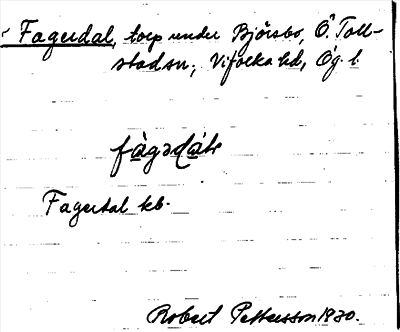 Fagerdal, torp under Björsbo, Ö. Toll-
stad sn., Vifolka hd, Ög. l.
Fagerdal kb.
Robert Pettersson 1930.